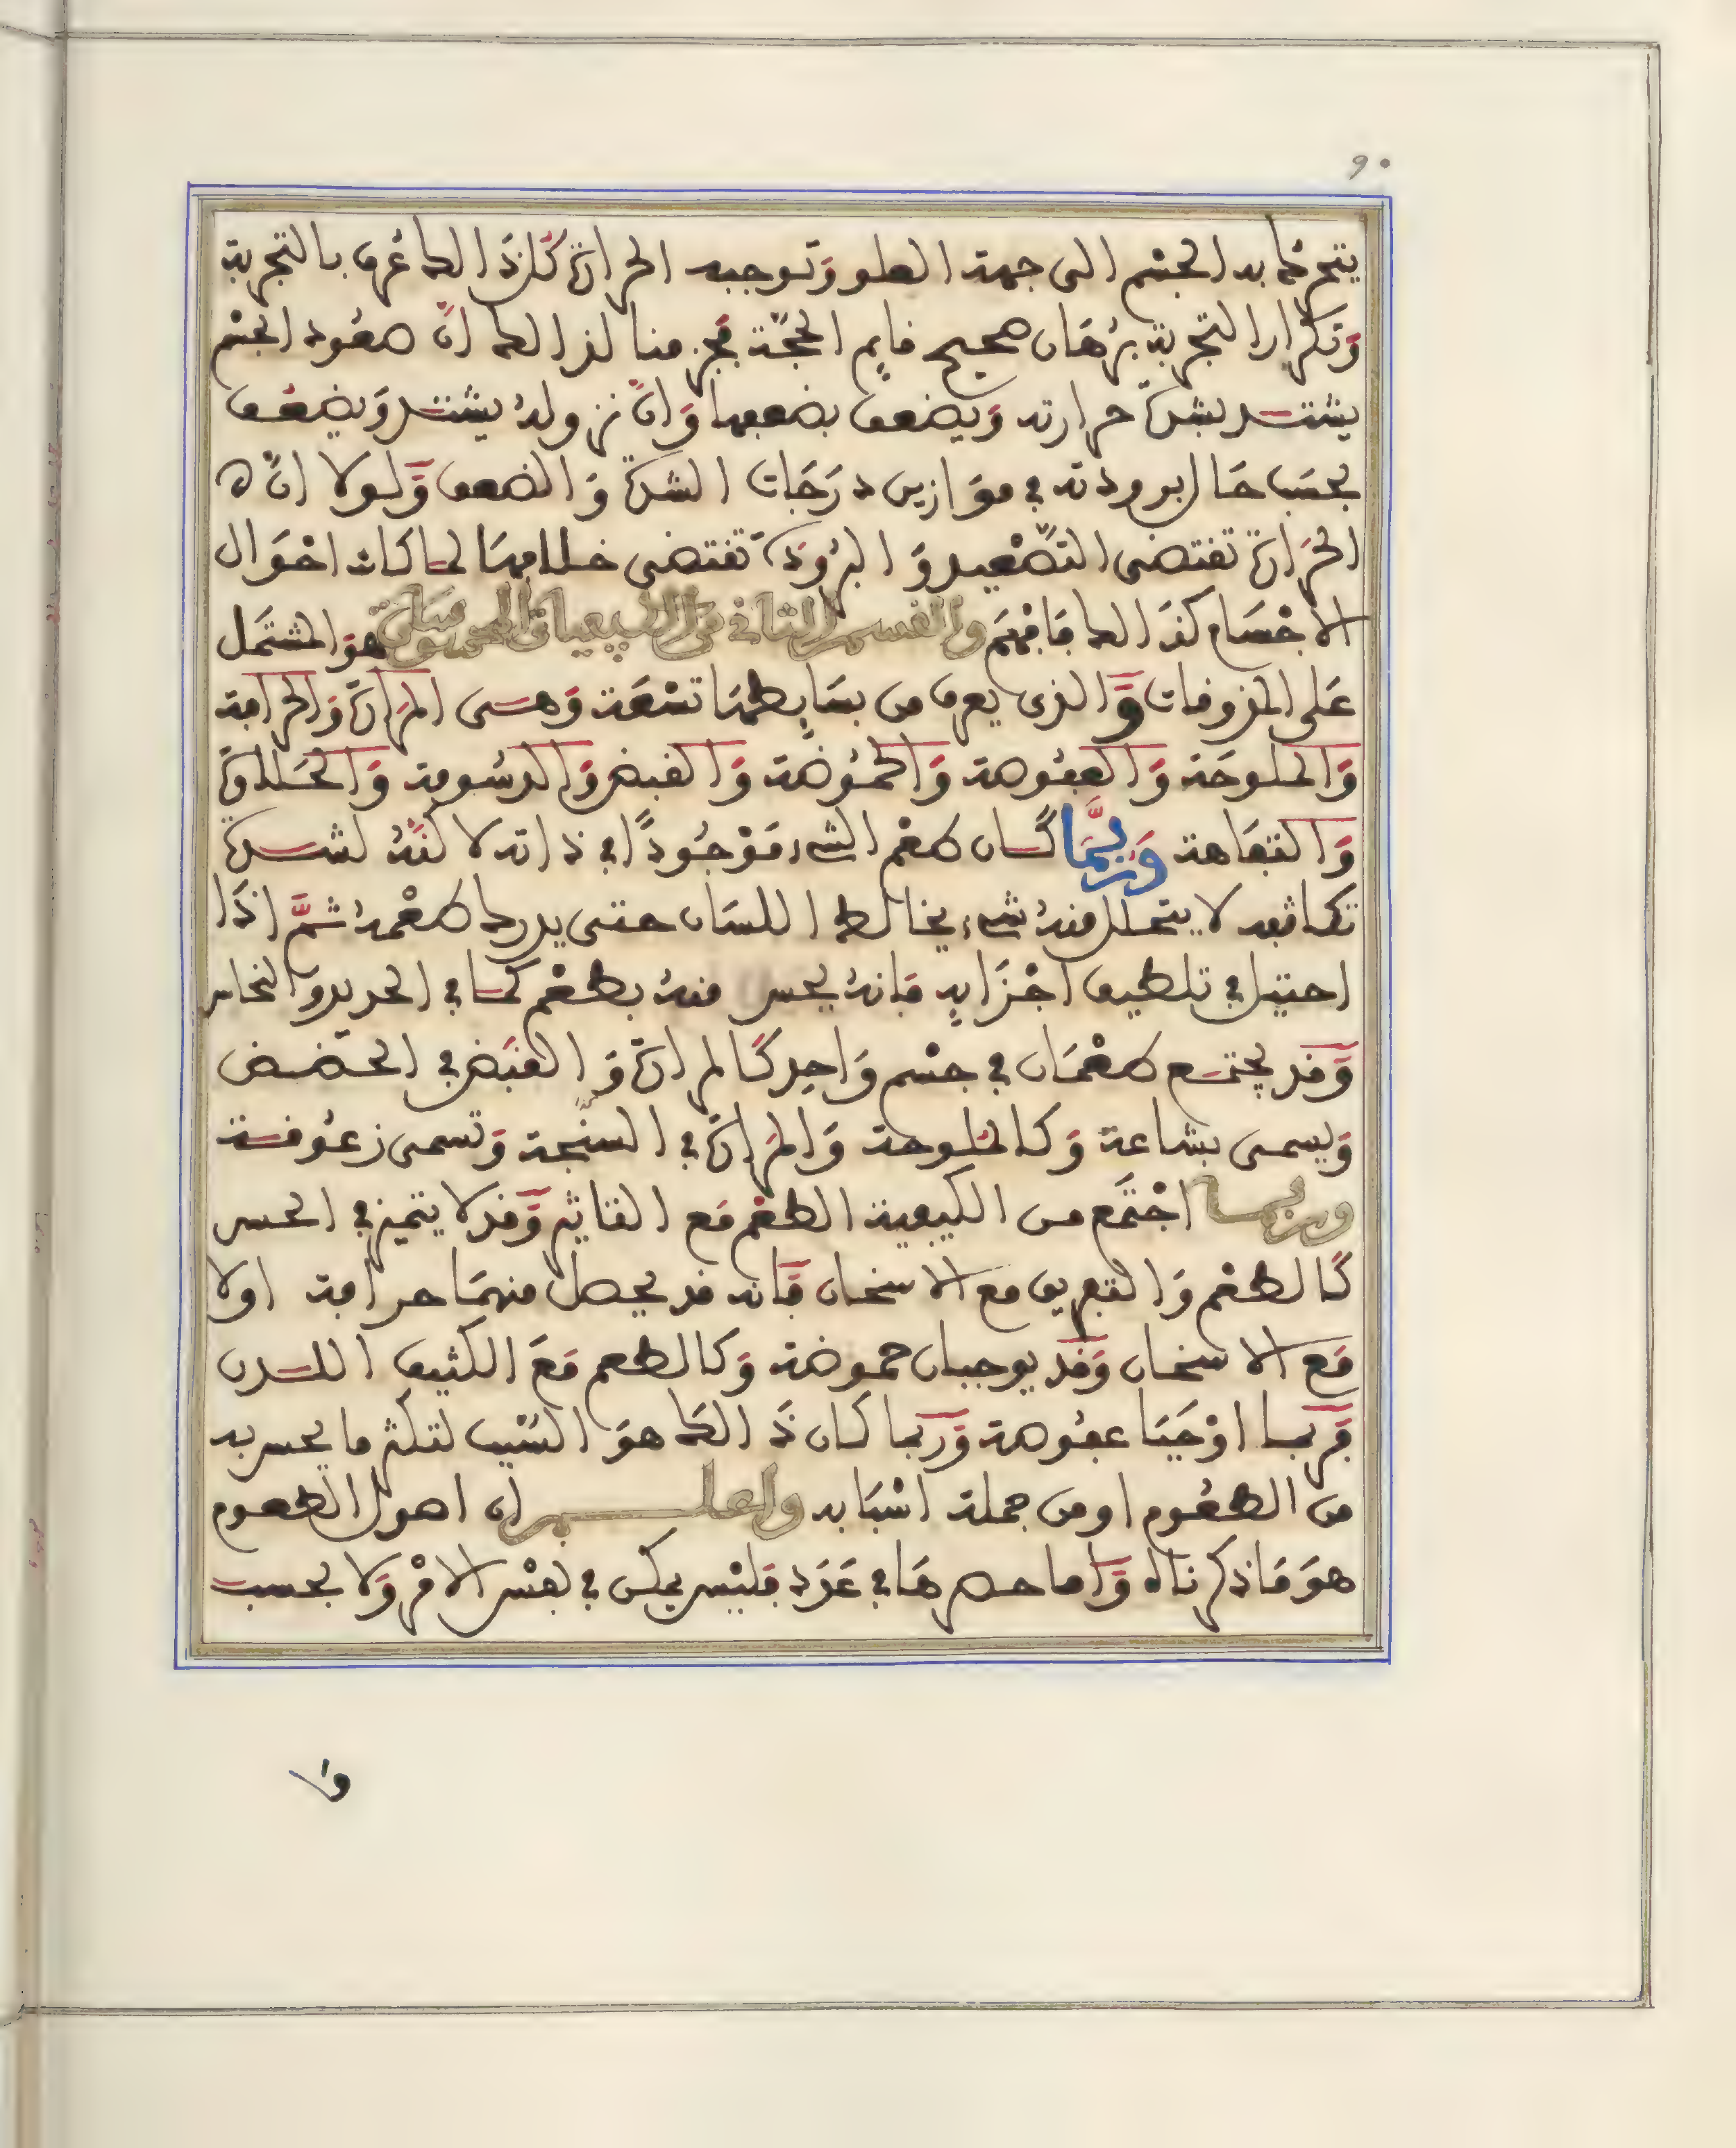 ٩٠
يتحرك به الجسم الى جهة العلو وتوجبه الحرارة كذا لك عرف بالتجربة
وَتكرار التجربة بُرْهَان صحيح قايم الحجَّة فجزمنا لذالك انّ صعُود الجسْم
يشتد بشدّة حرارته وَيضعف بضعفها وَانّ نزولهُ يشتد وَيضعُف
بحسَب حَال برودته في موَازين درَجَات الشدة وَالضعف وَلولا انّ
الحرَارة تقتضى التّصْعيد وَالبرُودَة تقتضى خلافهَا لما كان احْوَال
الاجْسَام كذالك فافهَم والقسم الثاني من الطبيعيات المحسوسات هوَ المشتمل
عَلى المذوقات وَالذى يعرف من بسَايطهَا تسْعَة وَهى المرَارة وَالحرافة
وَالملوحَة وَالعفُوصة وَالحمُوضة وَالقبض وَالدسُومة وَالحلاوة
وَالتفَاهة وَربَّمَا كان طعْم الشىء مَوْجُودًا في ذاته لاكنّهُ لشدة
تكاثفه لا يتحلل منهُ شىء يخالط اللسَان حتى يدرك طعْمهُ ثمَّ اذَا
احتيل في تلطيف اجْزَايه فانهُ يحس منهُ بطعْم كما في الحديد والنحاس
وَقد يجتمع طعْمَان في جسْم وَاحِد كَالمرارة وَالقبَض في الحضض
وَيسمى بشاعة وَكالملوحة وَالمرَارة في السنجة وَتسمى زعُوقة
وربما اجْتمَع من الكيفية الطعْم مَع التاثير وَقد لا يتميز في الحس
كَالطعْم وَالتفريق مع الاسخان فَانه قد يحصل منهمَا حرافة اولا
مَع الاسخان وَقد يوجبان حموضة وَكالطعم مَعَ الكثيف اللدن
فَربما اوْجَبَا عفُوصة وَربما كان ذَالك هوَ السّبب لتكثر ما يحس به
من الطعُوم او من جملة اسْبَابه واعلم ان اصول الطعوم
هوَ مَا ذكرناه وَاما حصرهَا في عَدَد فليْس يمكن في نفْس الامْر وَلا بحسب